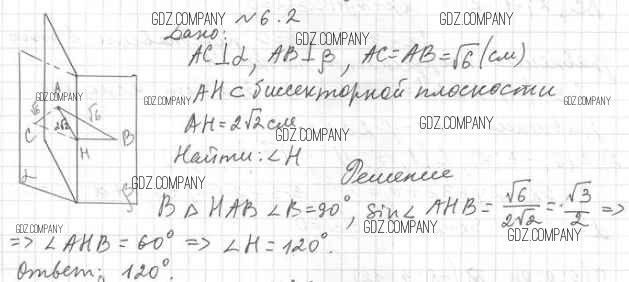 №6.2
Дано:
AC⊥α, AB⊥β, AC=AB=√6 (см)
AH ⊂ биссекторной плоскости
AH=2√2 см
Найти: ∠H
Решение
В △ HAB ∠B=90°, sin∠ AHB = √6/2√2 = √3/2 =>
=> ∠AHB = 60° => ∠H = 120°.
Ответ: 120°.
A
√6
√6
C
2√2
B
H
α
β
GDZ.COMPANY
GDZ.COMPANY
GDZ.COMPANY
GDZ.COMPANY
GDZ.COMPANY
GDZ.COMPANY
GDZ.COMPANY
GDZ.COMPANY
GDZ.COMPANY
GDZ.COMPANY
GDZ.COMPANY
GDZ.COMPANY
GDZ.COMPANY